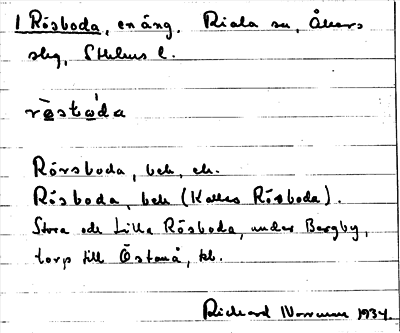 1 Rösboda, en äng. Riala sn, Åkers
skg, Sthlms l.
röstɷda
Rörsboda, beb, ek.
Rösboda, beb (Kallas Rösboda).
Stora och Lilla Rösboda, under Bergby,
torp till Östanå, kb.
Rickard 1934.